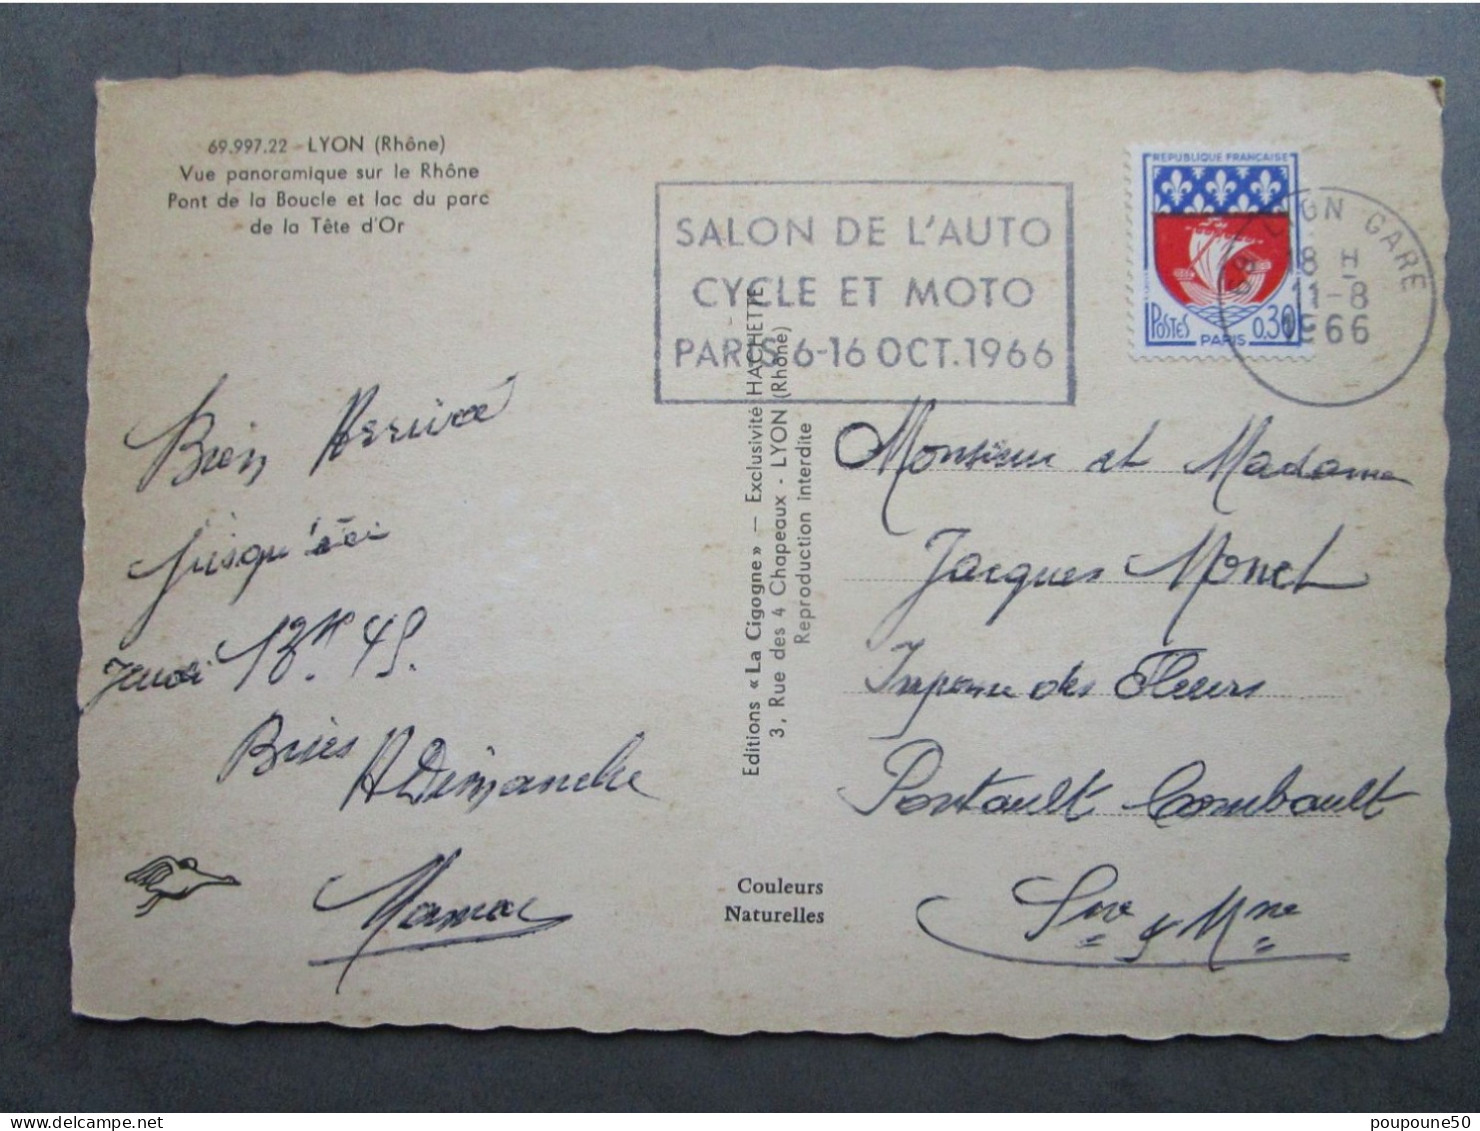 69.997.22 - LYON (Rhône)
Vue panoramique sur le Rhône
Pont de la Boucle et lac du parc
de la Tête d'Or
SALON DE L'AUTO
CYCLE ET MOTO
PARIS 6-16 OCT. 1966
REPUBLIQUE FRANÇAISE
POSTES 0,30
PARIS
LYON GARE
18 H
11-8
1966
Bien Arrivée
jusqu'ici
Jeudi 13H 45.
Bises
A Dimanche
Maman
Editions « La Cigogne » — Exclusivité HACHETTE
3, Rue des 4 Chapeaux - LYON (Rhône)
Reproduction interdite
Couleurs
Naturelles
Monsieur et Madame
Jacques Monet
Impasse des Fleurs
Pontault Combault
Sne & Mne
poupoune50